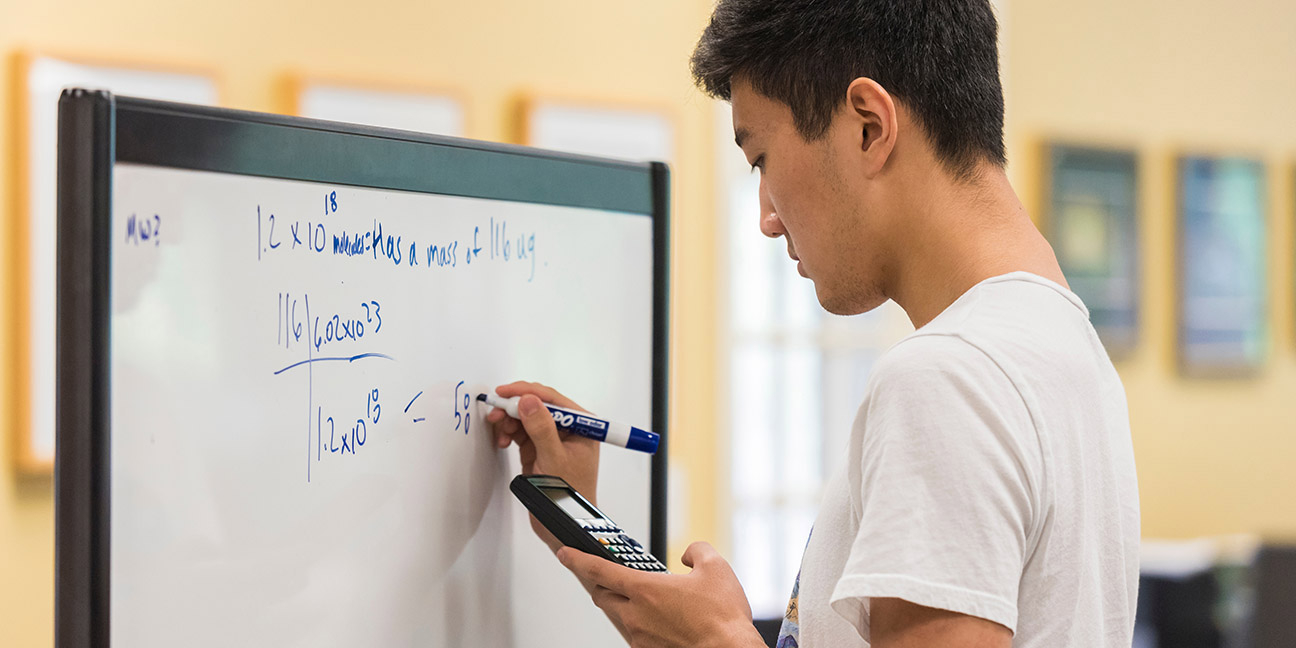 MW?
1.2 x 10^18 molecules = Has a mass of 116 ug.
116 | 6.02x10^23
1.2x10^18 = 58
EXPO